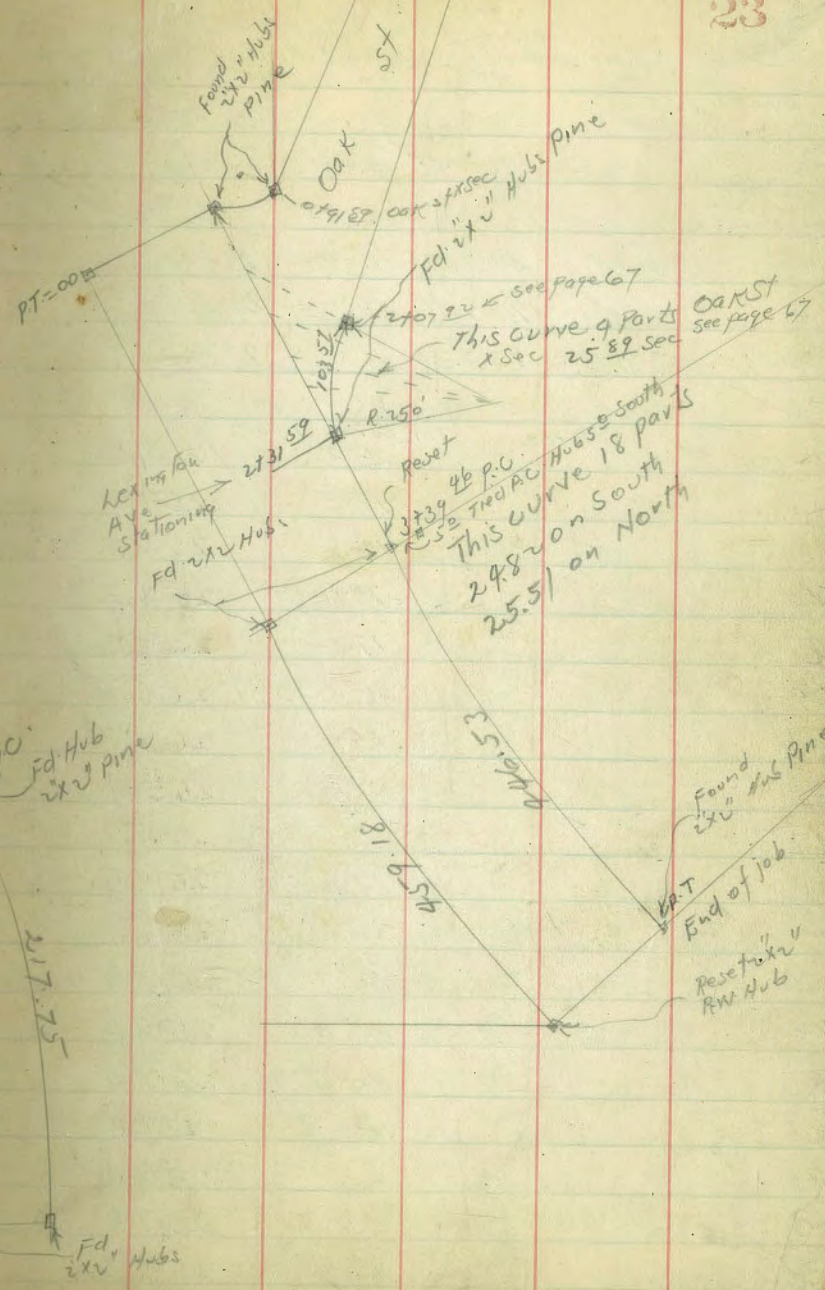 23
Found
2"x2" Hubs
pine
St
Oak
0+91 59 Oak St xsec
Fd. 2"x2" Hubs pine
P.T.=00
2+07 92 ← see page 67
This curve 4 Parts Oak St
x Sec 25 89 sec see page 67
103 57
R.250'
Lexington
Ave
Stationing
2+31 59
Reset
3+39 46 P.C.
5 0 Tied P.C. Hubs 5 0 South
This curve 18 parts
24.82 on South
25.51 on North
Fd. 2x2 Hubs
446.53
459.18
Fd. Hub
2"x2" pine
Found
2"x2" Hub Pine
P.T
End of job
Reset 2"x2"
RW Hub
217.75
Fd
2"x2" Hubs